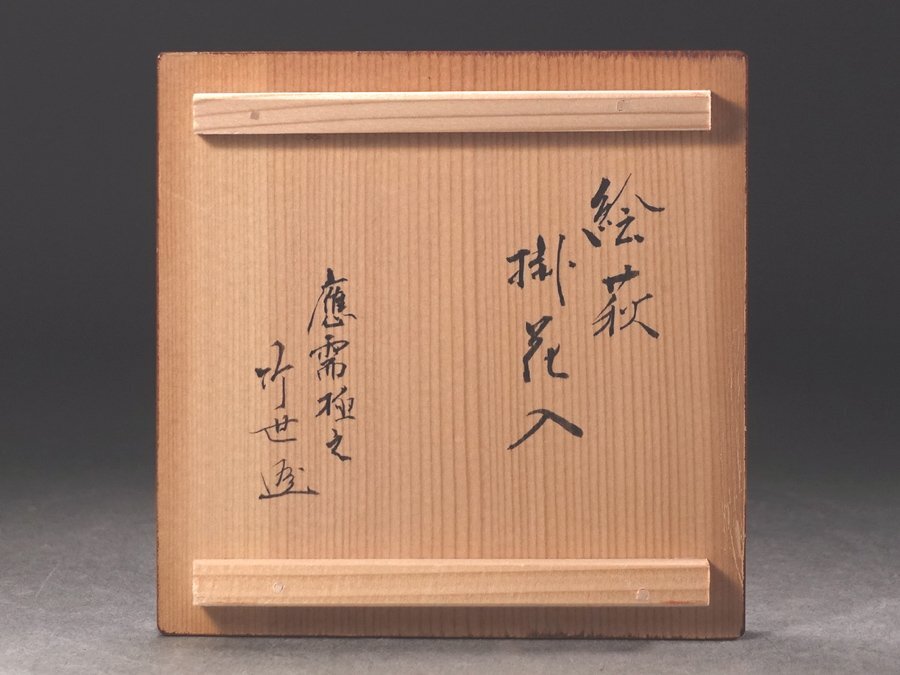 絵萩
掛花入
應需極之
竹世